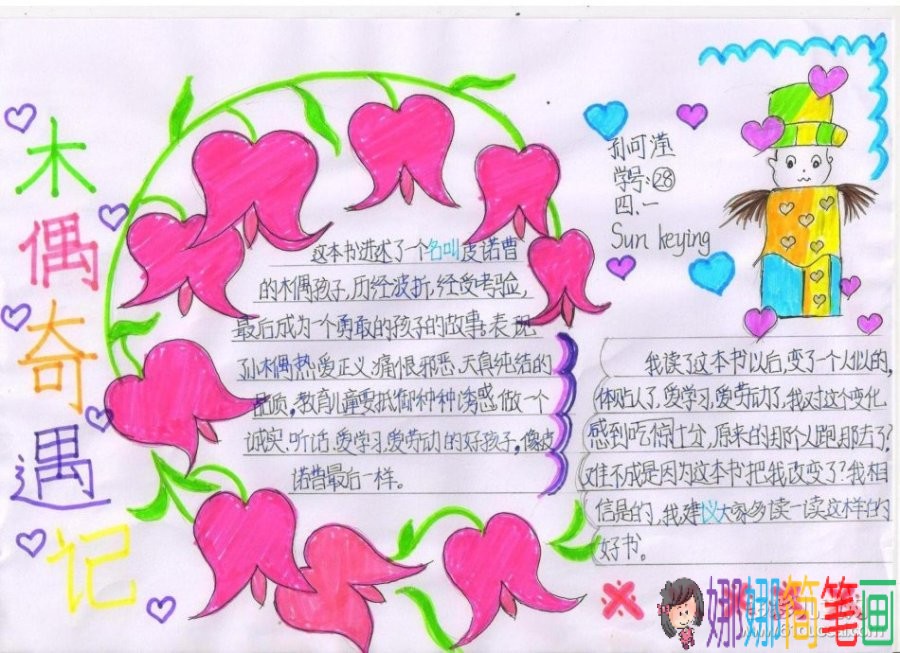 木偶奇遇记
孙可滢
学号:28
四.一
Sun keying
这本书讲述了个名叫皮诺曹
的木偶孩子,历经波折,经受考验,
最后成为一个勇敢的孩子的故事;表现
孙木偶热爱正义,痛恨邪恶,天真纯结的
品质。教育儿童要抵御种种诱惑,做一个
诚实.听话.爱学习,爱劳动的好孩子,像皮
诺曹最后一样。
我读了这本书以后,变了一个人似的,
体贴人了,爱学习,爱劳动了,我对这个变化
感到吃惊十分,原来的那个人跑那去了?
难不成是因为这本书把我改变了?我相
信是的,我建议大家多读一读这样的
好书。
娜娜简笔画